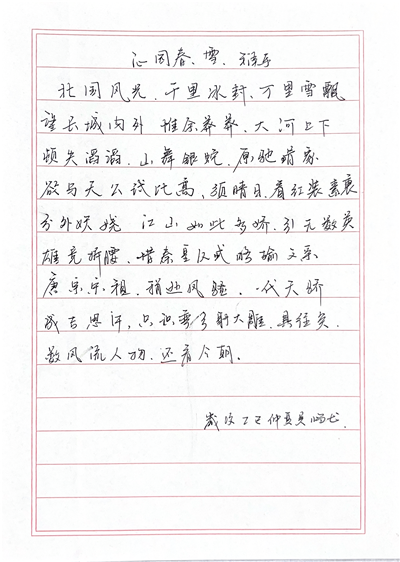 沁园春、雪、
北国风光、千里冰封、万里雪飘
望长城内外 惟余莽莽、大河上下
顿失滔滔、山舞银蛇、原驰蜡象
欲与天公试比高、须晴日、看红装素裹
分外妖娆 江山如此多娇、引无数英
雄竞折腰、惜秦皇汉武略输文采
唐宗宋祖、稍逊风骚、一代天骄
成吉思汗、只识弯弓射大雕、俱往矣、
数风流人物、还看今朝、
岁次 仲夏